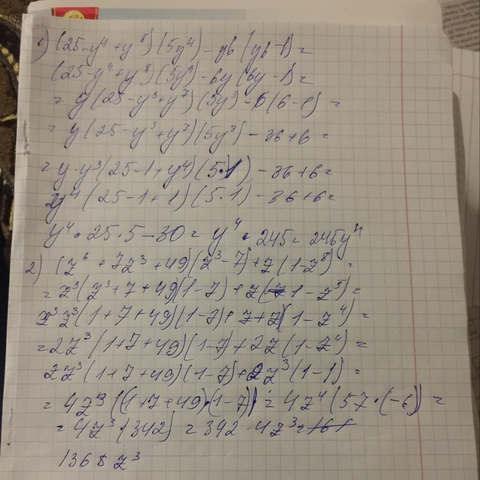 1) (25-y⁴+y⁸)(5y⁴)-y6(y6-1)=
(25-y⁴+y⁸)(5y⁴)-6y(6y-1)=
=y(25-y³+y⁷)(5y³)-6(6-1)=
=y(25-y³+y⁷)(5y³)-36+6=
=y·y³(25-1+y⁴)(5·1)-36+6=
y⁴(25-1+1)(5·1)-36+6=
y⁴·25·5-30=y⁴·245=245y⁴
2) (z⁶+7z³+49)(z³-7)+z(1-z⁸)=
=z³(z³+7+49)(1-7)+z(1-z⁵)=
z³z³(1+7+49)(1-7)+z+z(1-z⁴)=
=2z³(1+7+49)(1-7)+2z(1-z⁴)=
2z³(1+7+49)(1-7)+2z³(1-1)=
=4z³((1+7+49)·(1-7))=4z⁴(57·(-6))=
=4z³(342)=342·4z³=
1368z³